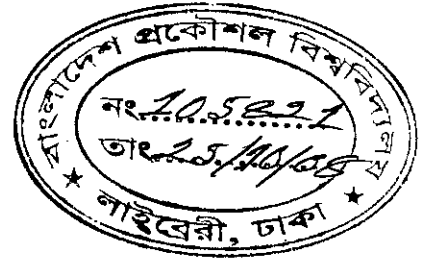 বাংলাদেশ প্রকৌশল বিশ্ববিদ্যালয়
নং 105821
তাং
লাইব্রেরী, ঢাকা